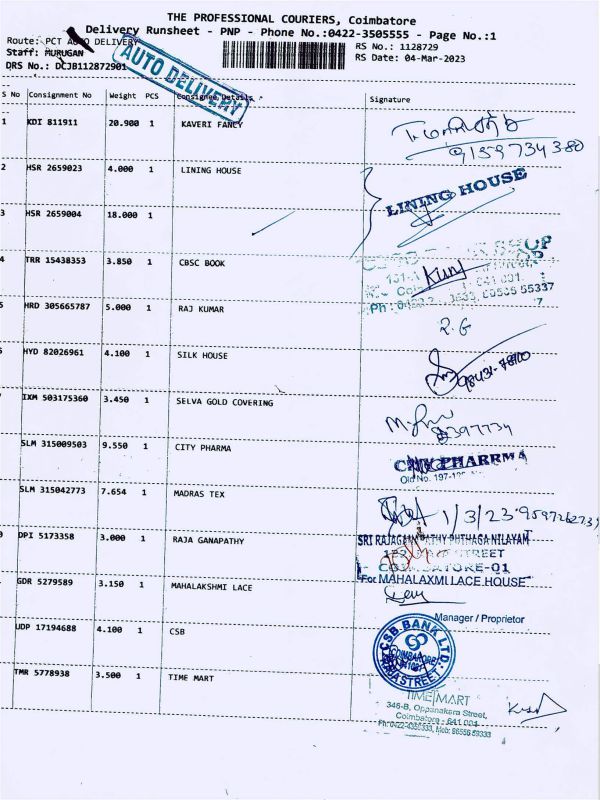 THE PROFESSIONAL COURIERS, Coimbatore
Delivery Runsheet - PNP - Phone No.:0422-3505555 - Page No.:1
Route: PCT AUTO DELIVERY
RS No.: 1128729
Staff: MURUGAN
RS Date: 04-Mar-2023
DRS No.: DCJB112872901
AUTO DELIVERY
S No Consignment No Weight PCS Consignee Details Signature
1 KDI 811911 20.900 1 KAVERI FANCY
9159734380
2 HSR 2659023 4.000 1 LINING HOUSE
LINING HOUSE
3 HSR 2659004 18.000 1
4 TRR 15438353 3.850 1 CBSC BOOK
5 HRD 305665787 5.000 1 RAJ KUMAR
R.G
6 HYD 82026961 4.100 1 SILK HOUSE
98431-78100
IXM 503175360 3.450 1 SELVA GOLD COVERING
SLM 315009503 9.550 1 CITY PHARMA
CITY PHARRMA
Old No. 197-
SLM 315042773 7.654 1 MADRAS TEX
1/3/23
DPI 5173358 3.000 1 RAJA GANAPATHY
SRI RAJAGANAPATHY PUTHAGA NILAYAM
STREET
COIMBATORE-01
GDR 5279589 3.150 1 MAHALAKSHMI LACE
For MAHALAXMI LACE HOUSE
Manager / Proprietor
UDP 17194688 4.100 1 CSB
CSB BANK LTD.
COIMBATORE
RAJA STREET
TMR 5778938 3.500 1 TIME MART
TIME MART
346-B, Oppanakara Street,
Coimbatore - 641 001
Ph: 0422-4350333, Mob: 86556 59333